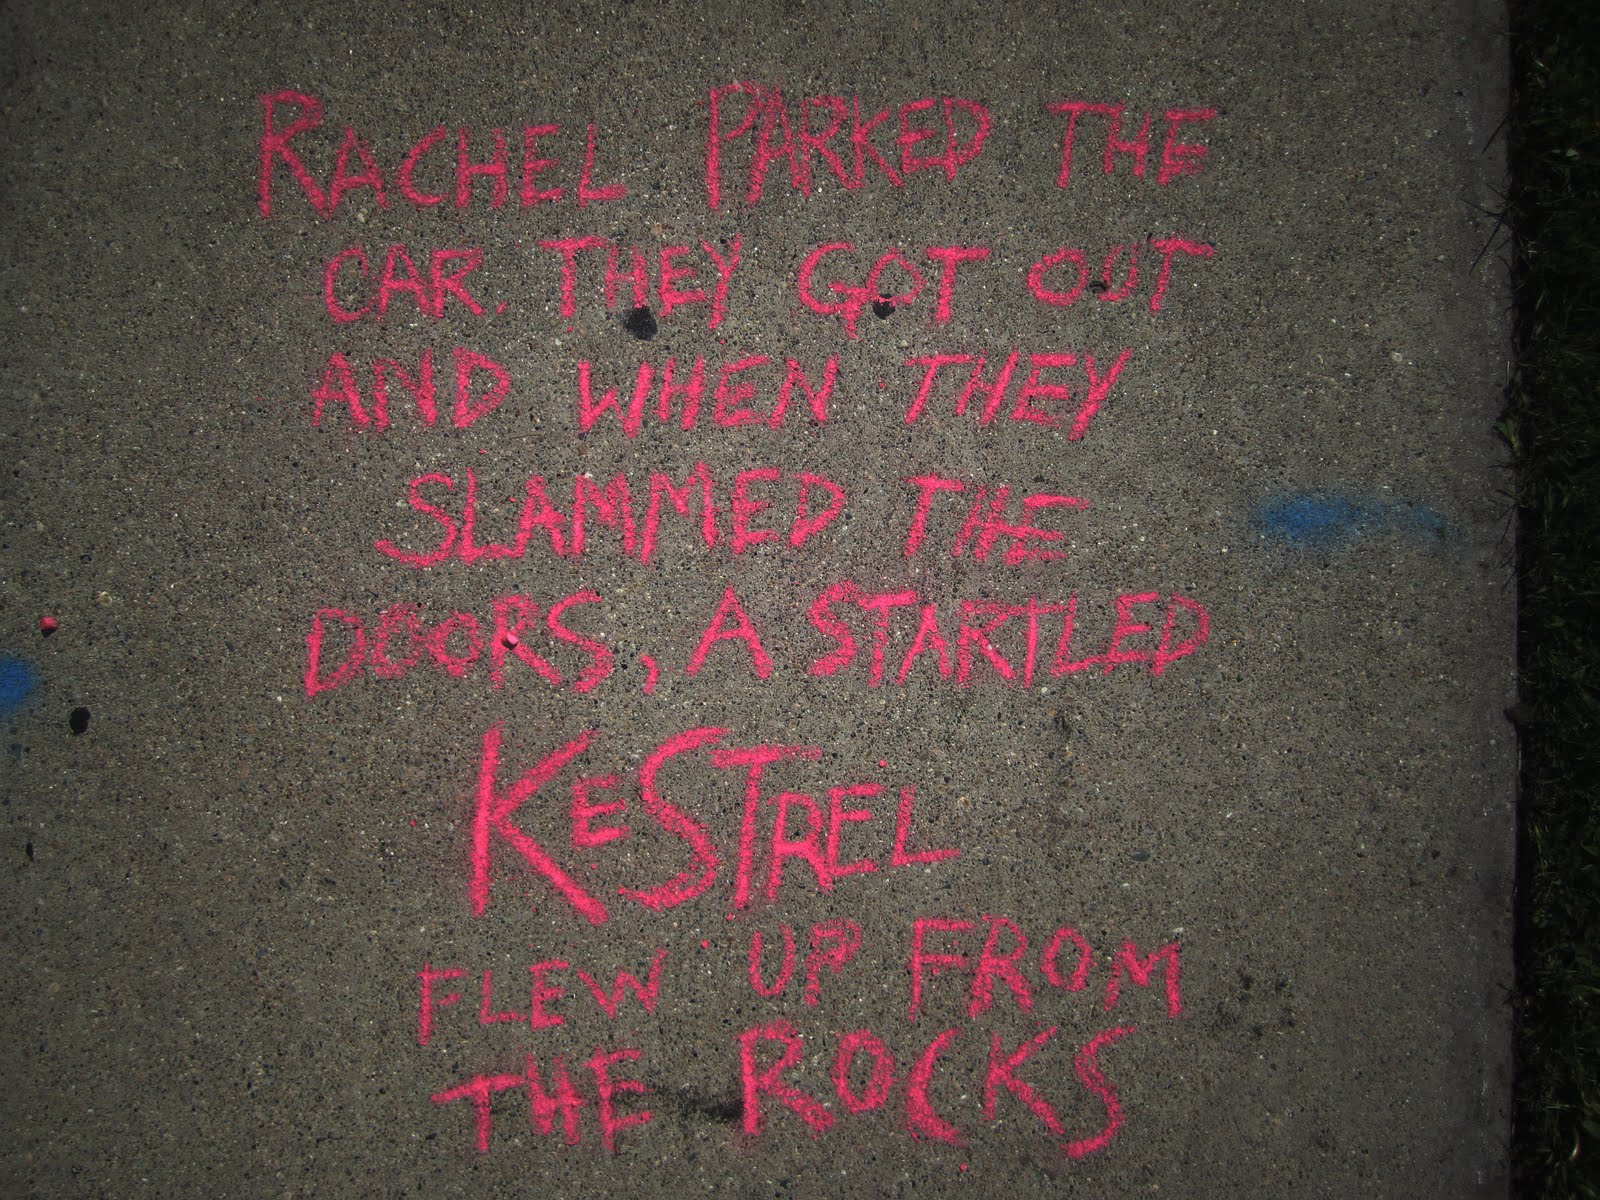 RACHEL PARKED THE
CAR. THEY GOT OUT
AND WHEN THEY
SLAMMED THE
DOORS, A STARTLED
KESTREL
FLEW UP FROM
THE ROCKS